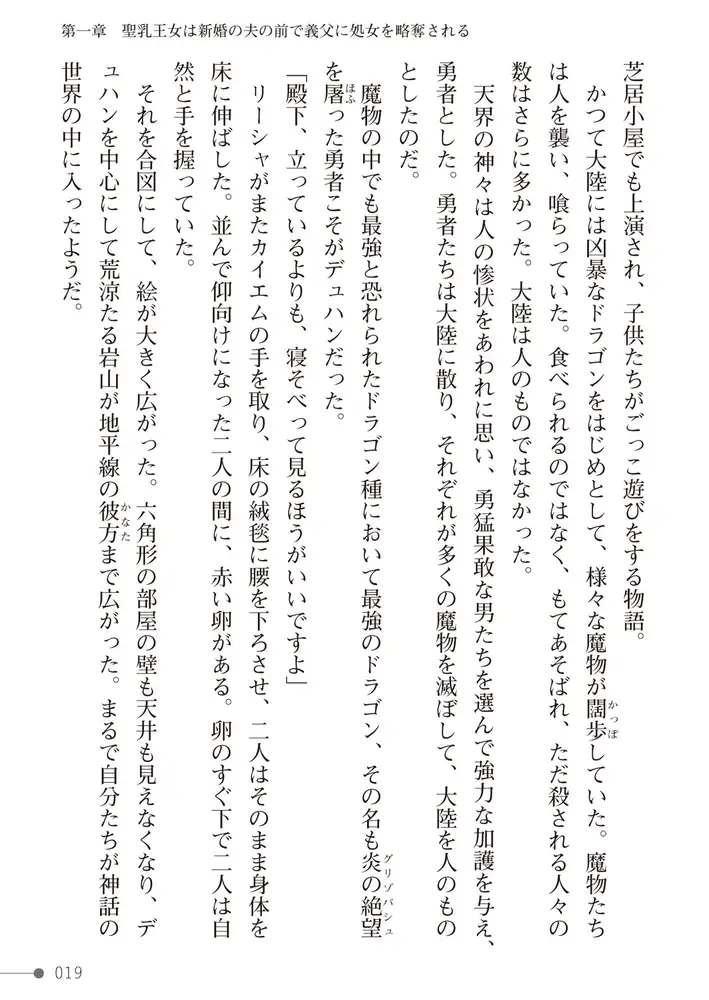 第一章　聖乳王女は新婚の夫の前で義父に処女を略奪される
芝居小屋でも上演され、子供たちがごっこ遊びをする物語。
かつて大陸には凶暴なドラゴンをはじめとして、様々な魔物が闊歩していた。魔物たち
は人を襲い、喰らっていた。食べられるのではなく、もてあそばれ、ただ殺される人々の
数はさらに多かった。大陸は人のものではなかった。
天界の神々は人の惨状をあわれに思い、勇猛果敢な男たちを選んで強力な加護を与え、
勇者とした。勇者たちは大陸に散り、それぞれが多くの魔物を滅ぼして、大陸を人のもの
としたのだ。
魔物の中でも最強と恐れられたドラゴン種において最強のドラゴン、その名も炎の絶望
を屠った勇者こそがデュハンだった。
「殿下、立っているよりも、寝そべって見るほうがいいですよ」
リーシャがまたカイエムの手を取り、床の絨毯に腰を下ろさせ、二人はそのまま身体を
床に伸ばした。並んで仰向けになった二人の間に、赤い卵がある。卵のすぐ下で二人は自
然と手を握っていた。
それを合図にして、絵が大きく広がった。六角形の部屋の壁も天井も見えなくなり、デ
ュハンを中心にして荒涼たる岩山が地平線の彼方まで広がった。まるで自分たちが神話の
世界の中に入ったようだ。
かっぽ
グリゾバシュ
ほふ
かなた
019